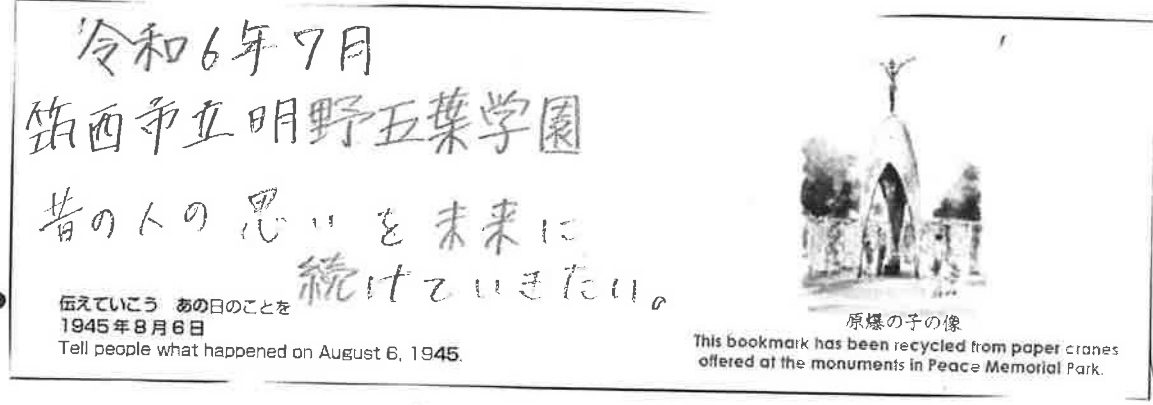 令和6年7月
筑西市立明野五葉学園
昔の人の思いを未来に
続けていきたい。
伝えていこう あの日のことを
1945年8月6日
Tell people what happened on August 6, 1945.
原爆の子の像
This bookmark has been recycled from paper cranes
offered at the monuments in Peace Memorial Park.